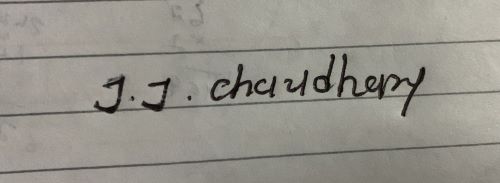 J.J. chaudhery